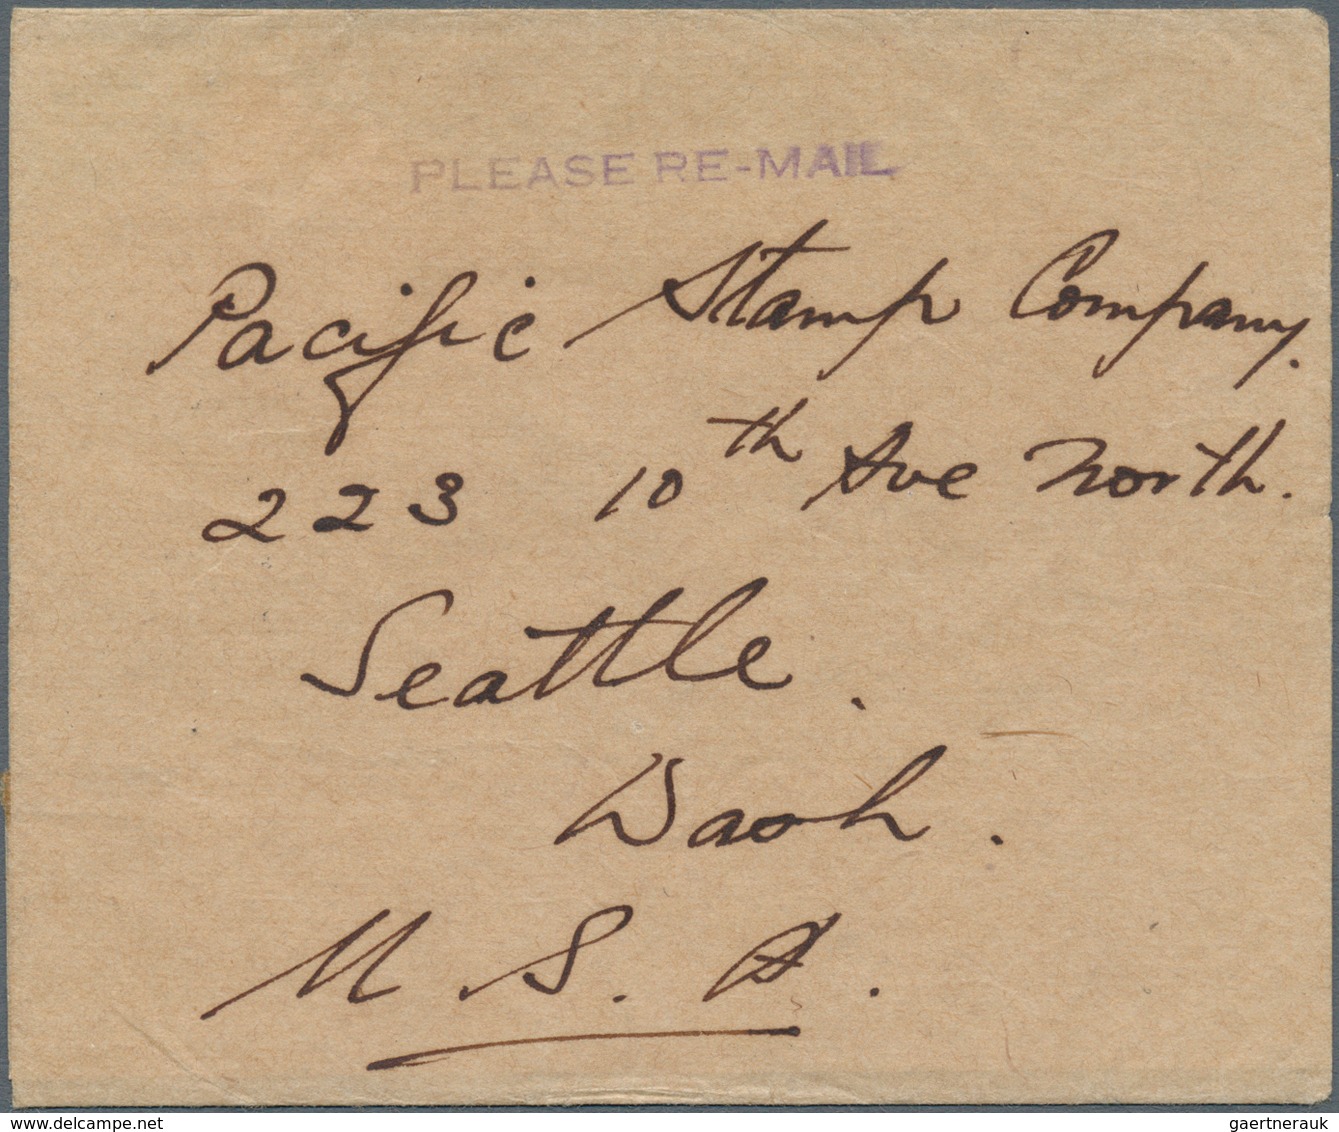 PLEASE RE-MAIL
Pacific Stamp Company.
223 10th Ave North.
Seattle.
Wash.
U. S. A.
delcampe.net
gaertnerauk